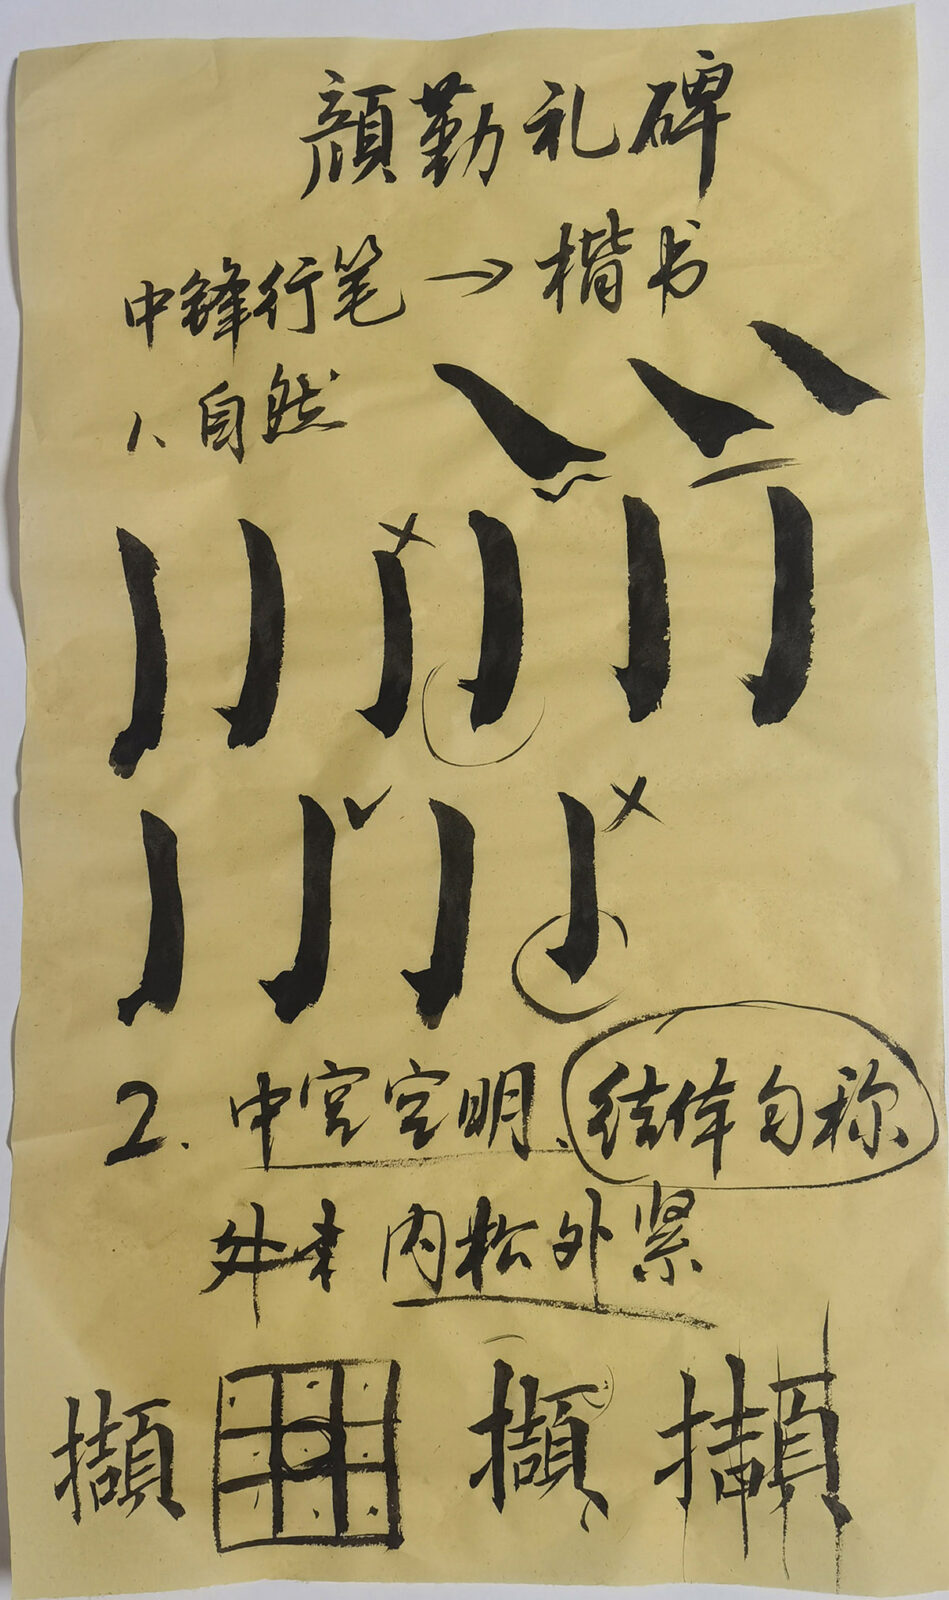 顔勤礼碑
中锋行笔→楷书
1、自然
2.中宫空明、结体匀称
内松外紧
擷 擷 擷